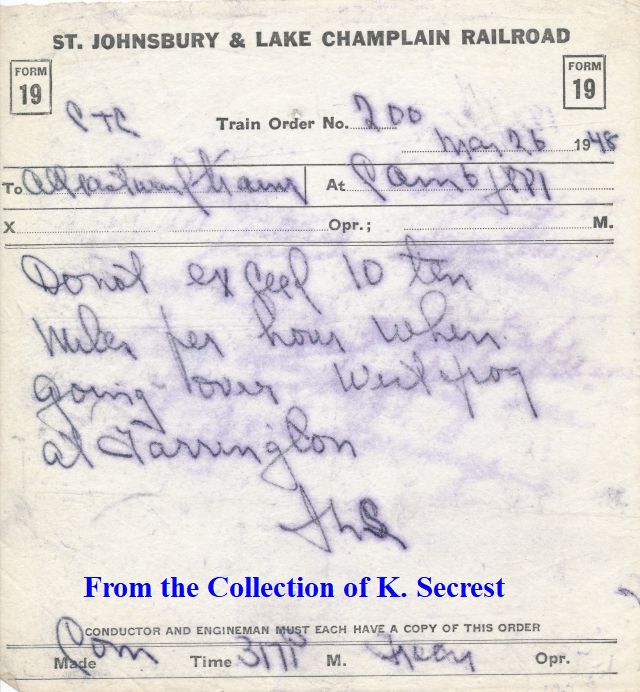 ST. JOHNSBURY & LAKE CHAMPLAIN RAILROAD
FORM 19
FORM 19
CTC
Train Order No. 200
May 26 1948
To All Eastward Trains At
X Opr.; M.
Do not exceed 10 ten
miles per hour when
going over West frog
at Farrington
From the Collection of K. Secrest
CONDUCTOR AND ENGINEMAN MUST EACH HAVE A COPY OF THIS ORDER
Made Com Time M. Opr.